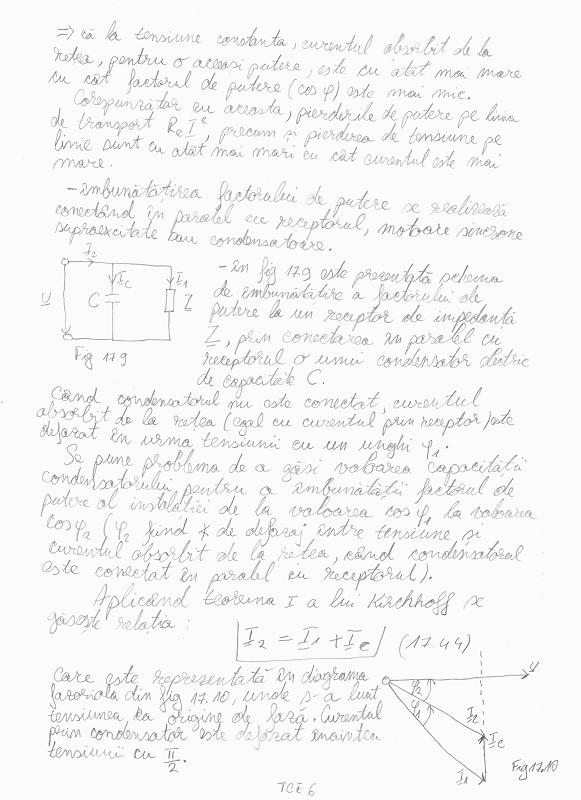 => că la tensiune constanta, curentul absorbit de la
rețea, pentru o aceeasi putere, este cu atât mai mare
cu cât factorul de putere (cos φ) este mai mic.
Corespunzător cu aceasta, pierderile de putere pe linia
de transport
, precum și pierderea de tensiune pe
linie sunt cu atât mai mari cu cât curentul este mai
mare.
- îmbunătățirea factorului de putere se realizează
conectând în paralel cu receptorul, motoare sincrone
supraexcitate sau condensatoare.
I2
Ic
I1
U
C
Z
Fig 17.9
- în fig 17.9 este prezentată schema
de îmbunătățire a factorului de
putere la un receptor de impedanță
Z, prin conectarea în paralel cu
receptorul o unui condensator electric
de capacitate C.
Când condensatorul nu este conectat, curentul
absorbit de la rețea (egal cu curentul prin receptor) este
defazat în urma tensiunii cu un unghi φ1.
Se pune problema de a găsi valoarea capacității
condensatorului pentru a îmbunătății factorul de
putere al instalației de la valoarea cos φ1 la valoarea
cos φ2 (φ2 fiind ∢ de defazaj între tensiune și
curentul absorbit de la rețea, când condensatorul
este conectat în paralel cu receptorul).
Aplicând teorema I a lui Kirchhoff se
găsește relația :
I2 = I1 + Ic (17.44)
Care este reprezentată în diagrama
fazorială din fig 17.10, unde s-a luat
tensiunea ca origine de fază. Curentul
prin condensator este defazat înaintea
tensiunii cu π/2.
U
φ2
φ1
I2
Ic
I1
Fig 17.10
TCE 6